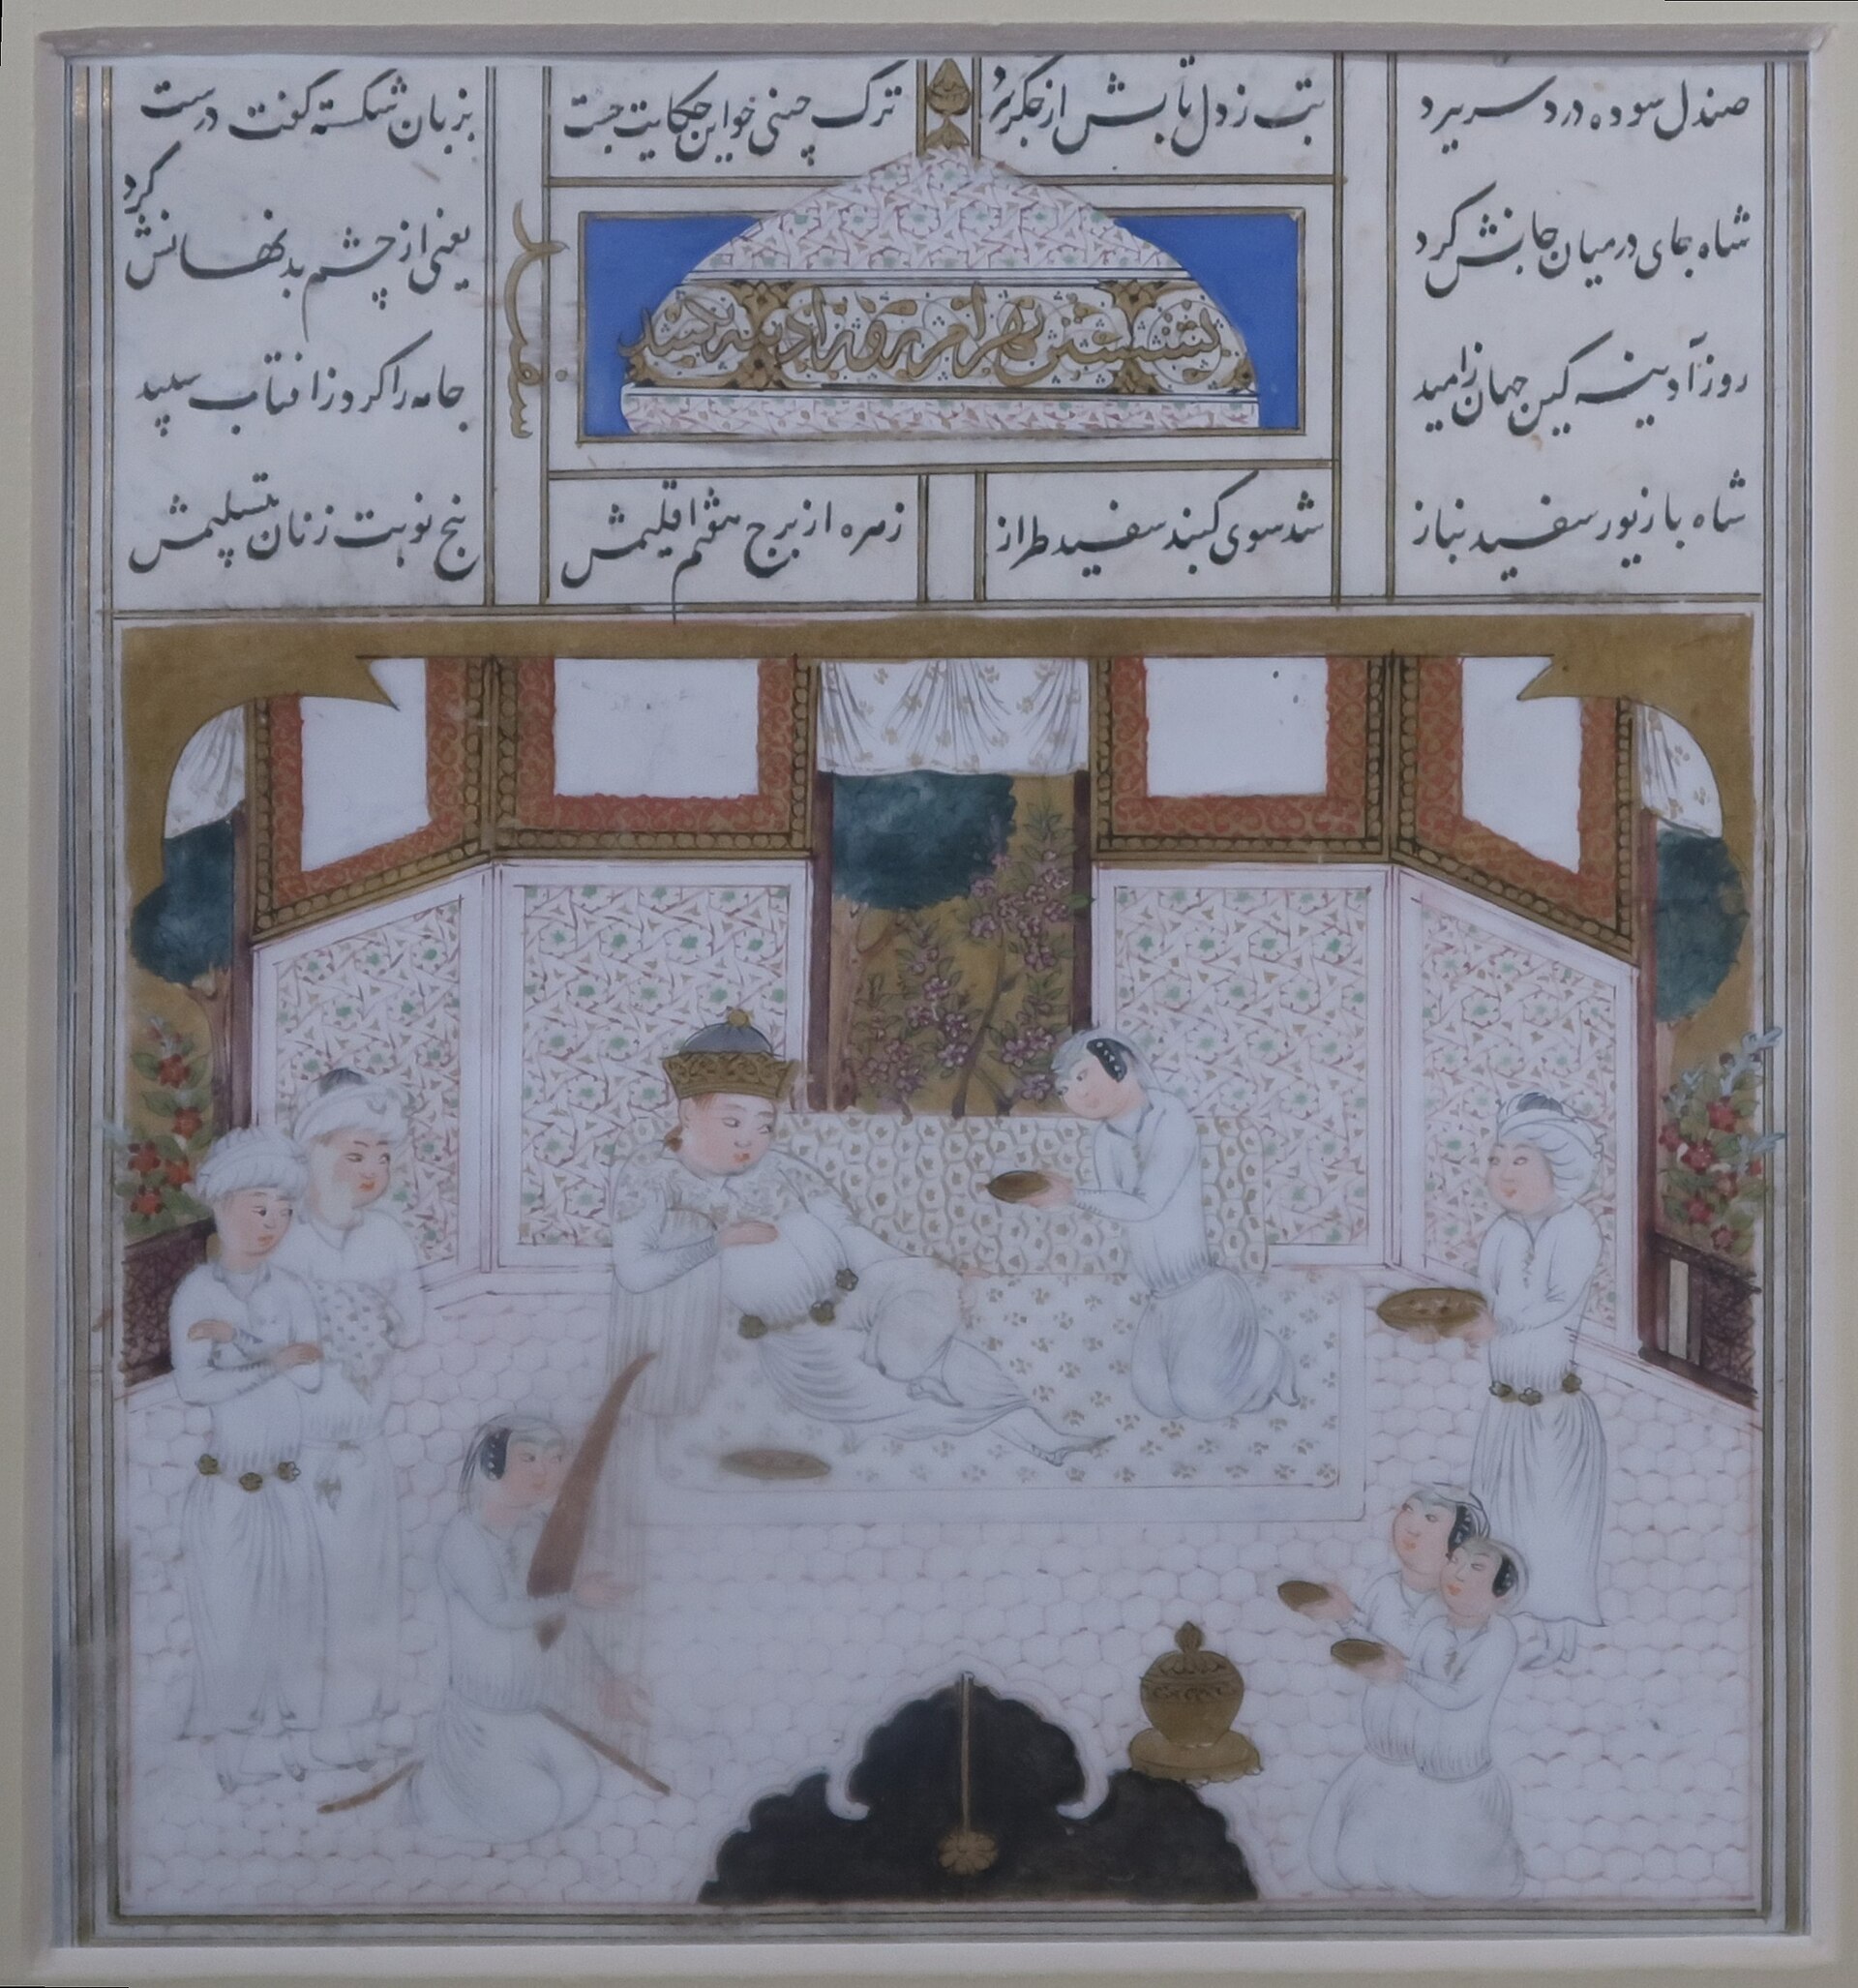 صندل سوده درد سر ببرد تب ز دل تابش از جکر ببرد
ترک چینی چو این حکایت جست بزبان شکسته کفت درست
شاه جای درمیان جانش کرد یعنی از چشم بد نهانش کرد
نشستن بهرام روز ادینه کنبد
سفید
روز آدینه کین جهان زامید جامه را کرد ز افتاب سپید
شاه با زیور سفید بناز شد سوی کنبد سفید طراز
زهره از برج اقلیمش پنج نوبت زنان بتسلیمش